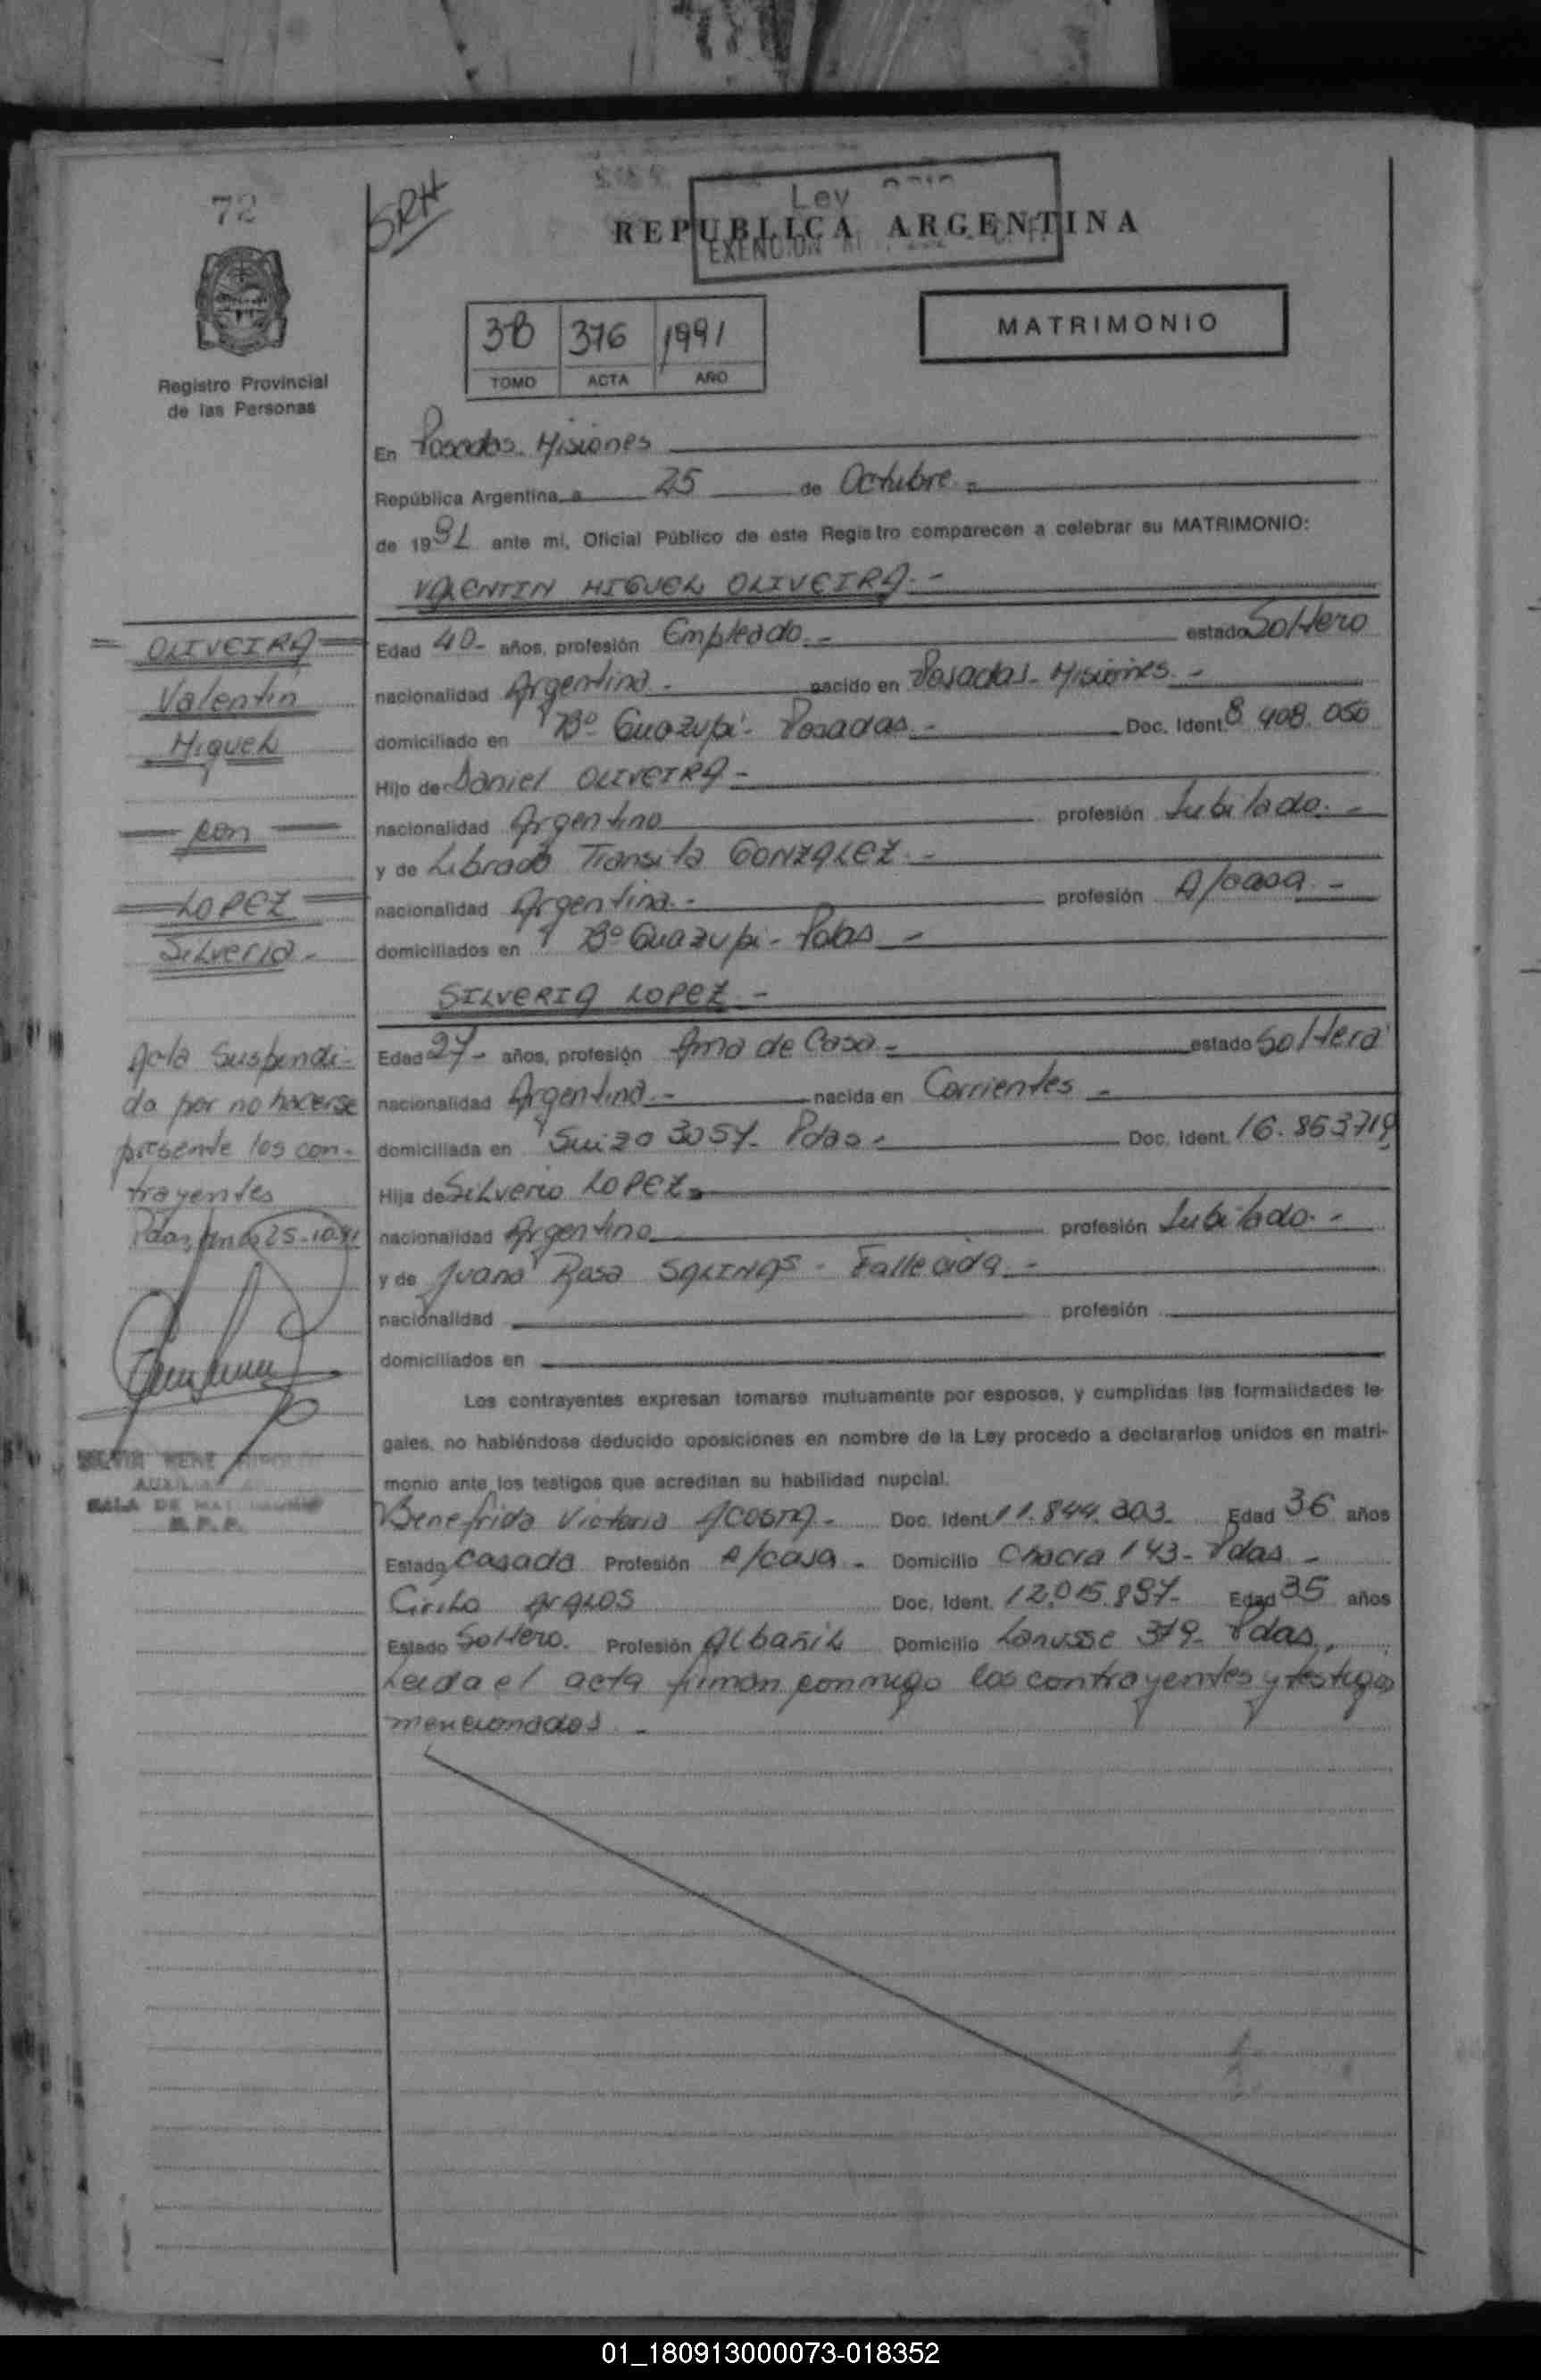 72
SRH
Ley
REPUBLICA ARGENTINA
EXENCION
3B 376 1991
TOMO ACTA AÑO
MATRIMONIO
Registro Provincial
de las Personas
En Posadas. Misiones
República Argentina, a 25 de Octubre
de 1991 ante mi, Oficial Público de este Registro comparecen a celebrar su MATRIMONIO:
VALENTIN MIGUEL OLIVEIRA.-
OLIVEIRA
Valentin
Miguel
con
LOPEZ
Silveria-
Edad 40- años, profesión Empleado.- estado Soltero
nacionalidad Argentina.- nacido en Posadas- Misiones.-
domiciliado en Bº Guazupi- Posadas.- Doc. Ident. 8.408.050
Hijo de Daniel OLIVEIRA-
nacionalidad Argentino profesión Jubilado.-
y de Librada Transita GONZALEZ.-
nacionalidad Argentina.- profesión A/casa.-
domiciliados en Bº Guazupi- Pdas-
SILVERIA LOPEZ-
Acta Suspendi-
da por no hacerse
presente los con-
trayentes
Pdas, 25-10-91
Edad 27- años, profesión Ama de Casa- estado Soltera
nacionalidad Argentina.- nacida en Corrientes-
domiciliada en Suiza 3057- Pdas- Doc. Ident. 16.853719
Hija de Silverio LOPEZ
nacionalidad Argentino profesión Jubilado.-
y de Juana Rosa SALINAS- Fallecida.-
nacionalidad profesión
domiciliados en
Los contrayentes expresan tomarse mutuamente por esposos, y cumplidas las formalidades le-
gales, no habiéndose deducido oposiciones en nombre de la Ley procedo a declararlos unidos en matri-
monio ante los testigos que acreditan su habilidad nupcial.
RENE
SALA DE
R.P.P.
Benefrida Victoria ACOSTA- Doc. Ident. 11.844.303- Edad 36 años
Estado Casada Profesión A/casa- Domicilio Chacra 143- Pdas-
Cirilo Doc. Ident. 12.015.897- Edad 35 años
Estado Soltero. Profesión Albañil Domicilio Lanusse 379- Pdas.
Leida el acta firman conmigo los contrayentes y testigos
mencionados-
01_180913000073-018352